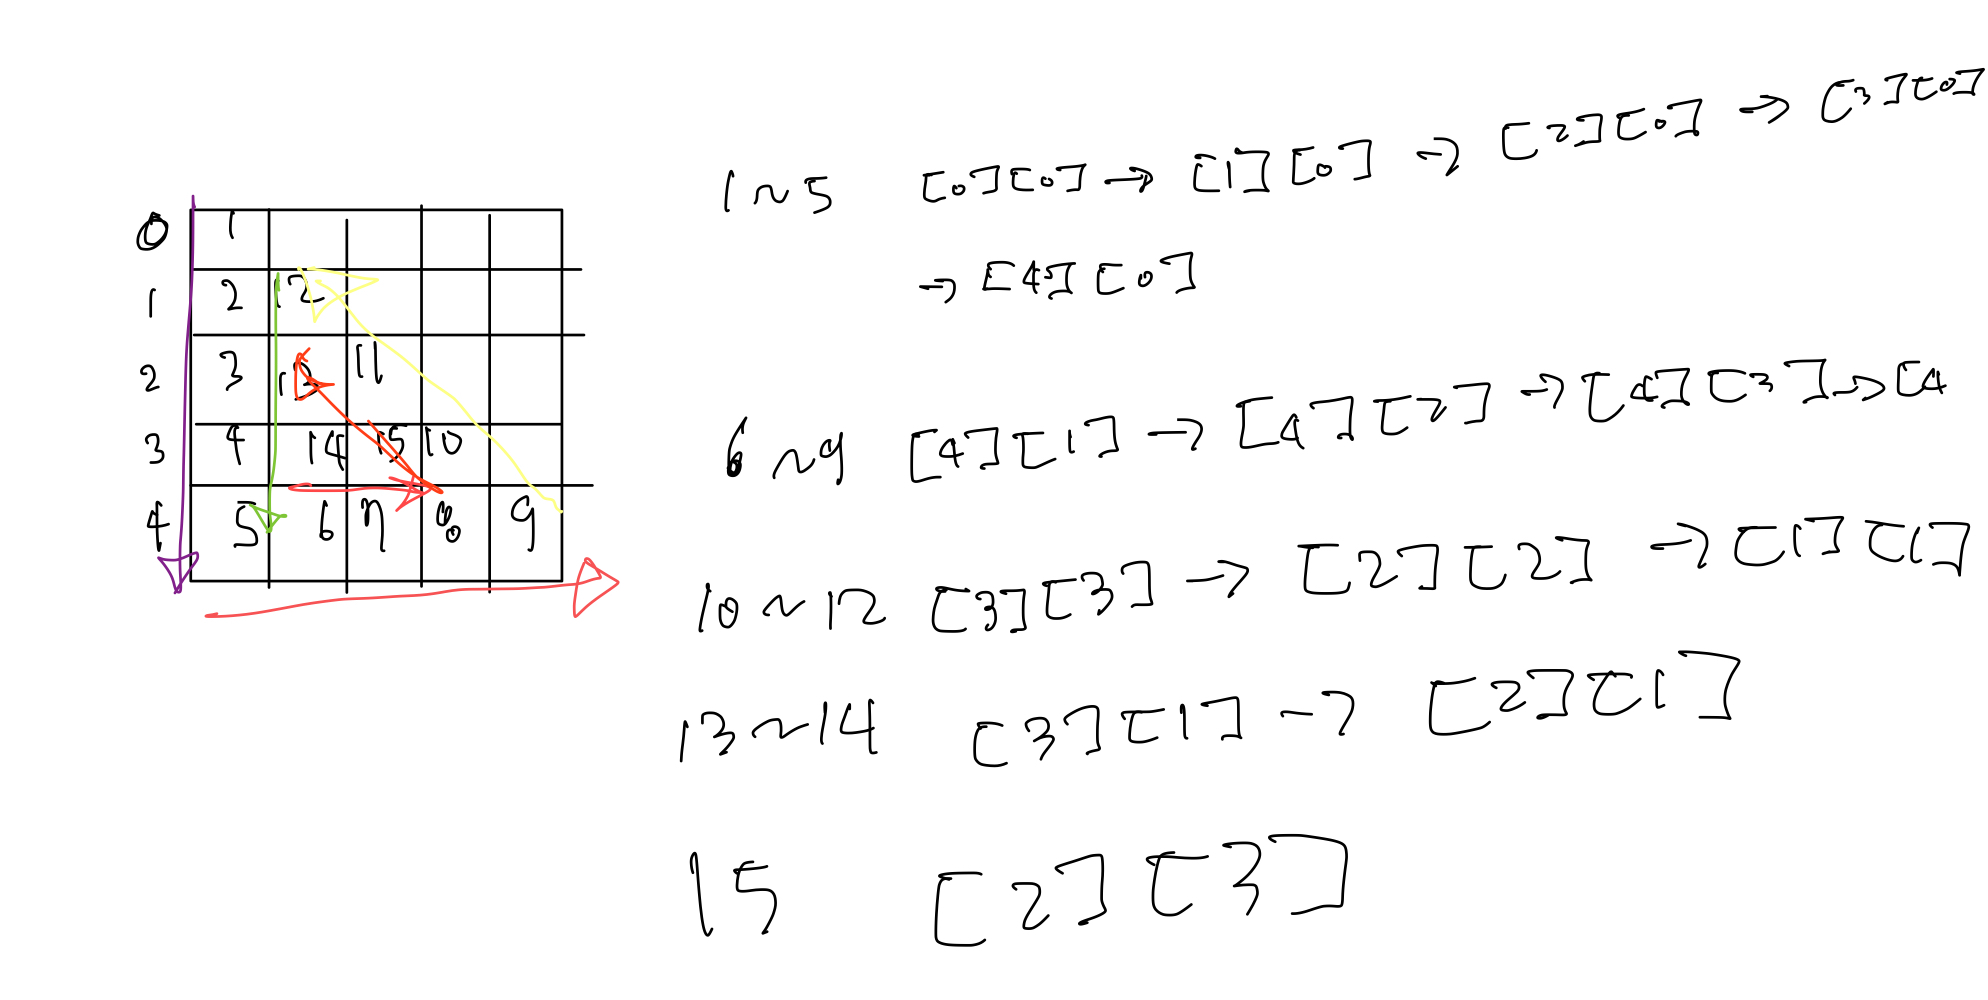 0 1
1 2 12
2 3 13 11
3 4 14 15 10
4 5 6 7 8 9
1 ~ 5 [0][0] → [1][0] → [2][0] → [3][0]
→ [4][0]
6 ~ 9 [4][1] → [4][2] → [4][3] → [4
10 ~ 12 [3][3] → [2][2] → [1][1]
13 ~ 14 [3][1] → [2][1]
15 [2][3]